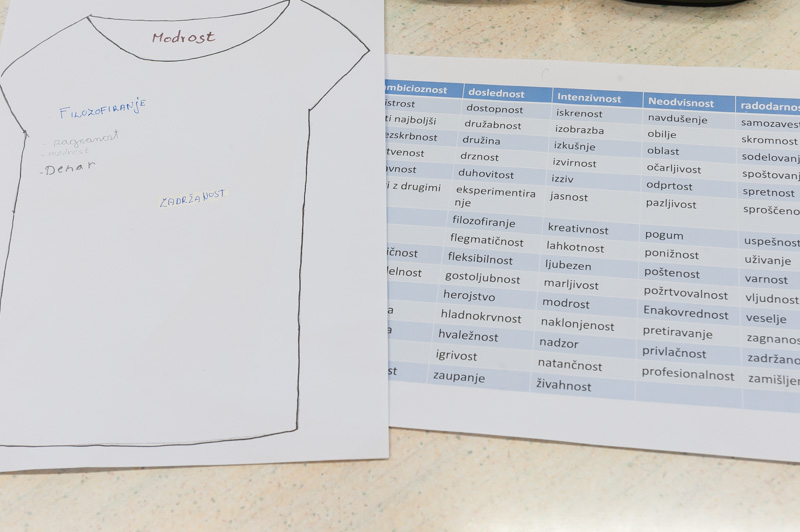 Modrost
FILOZOFIRANJE
- zagnanost
- modrost
- Denar
ZADRŽANOST
ambicioznost doslednost Intenzivnost Neodvisnost radodarnos
istrost dostopnost iskrenost navdušenje samozavest
ti najboljši družabnost izobrazba obilje skromnost
ezskrbnost družina izkušnje oblast sodelovanj
tvenost drznost izvirnost očarljivost spoštovanj
avnost duhovitost izziv odprtost spretnost
i z drugimi eksperimentira jasnost pazljivost sproščeno
nje
filozofiranje kreativnost pogum uspešnost
flegmatičnost lahkotnost ponižnost uživanje
ičnost fleksibilnost ljubezen poštenost varnost
delnost gostoljubnost marljivost požrtvovalnost vljudnost
herojstvo modrost Enakovrednost veselje
a hladnokrvnost naklonjenost pretiravanje zagnanos
a hvaležnost nadzor privlačnost zadržano
igrivost natančnost profesionalnost zamišljen
st zaupanje živahnost